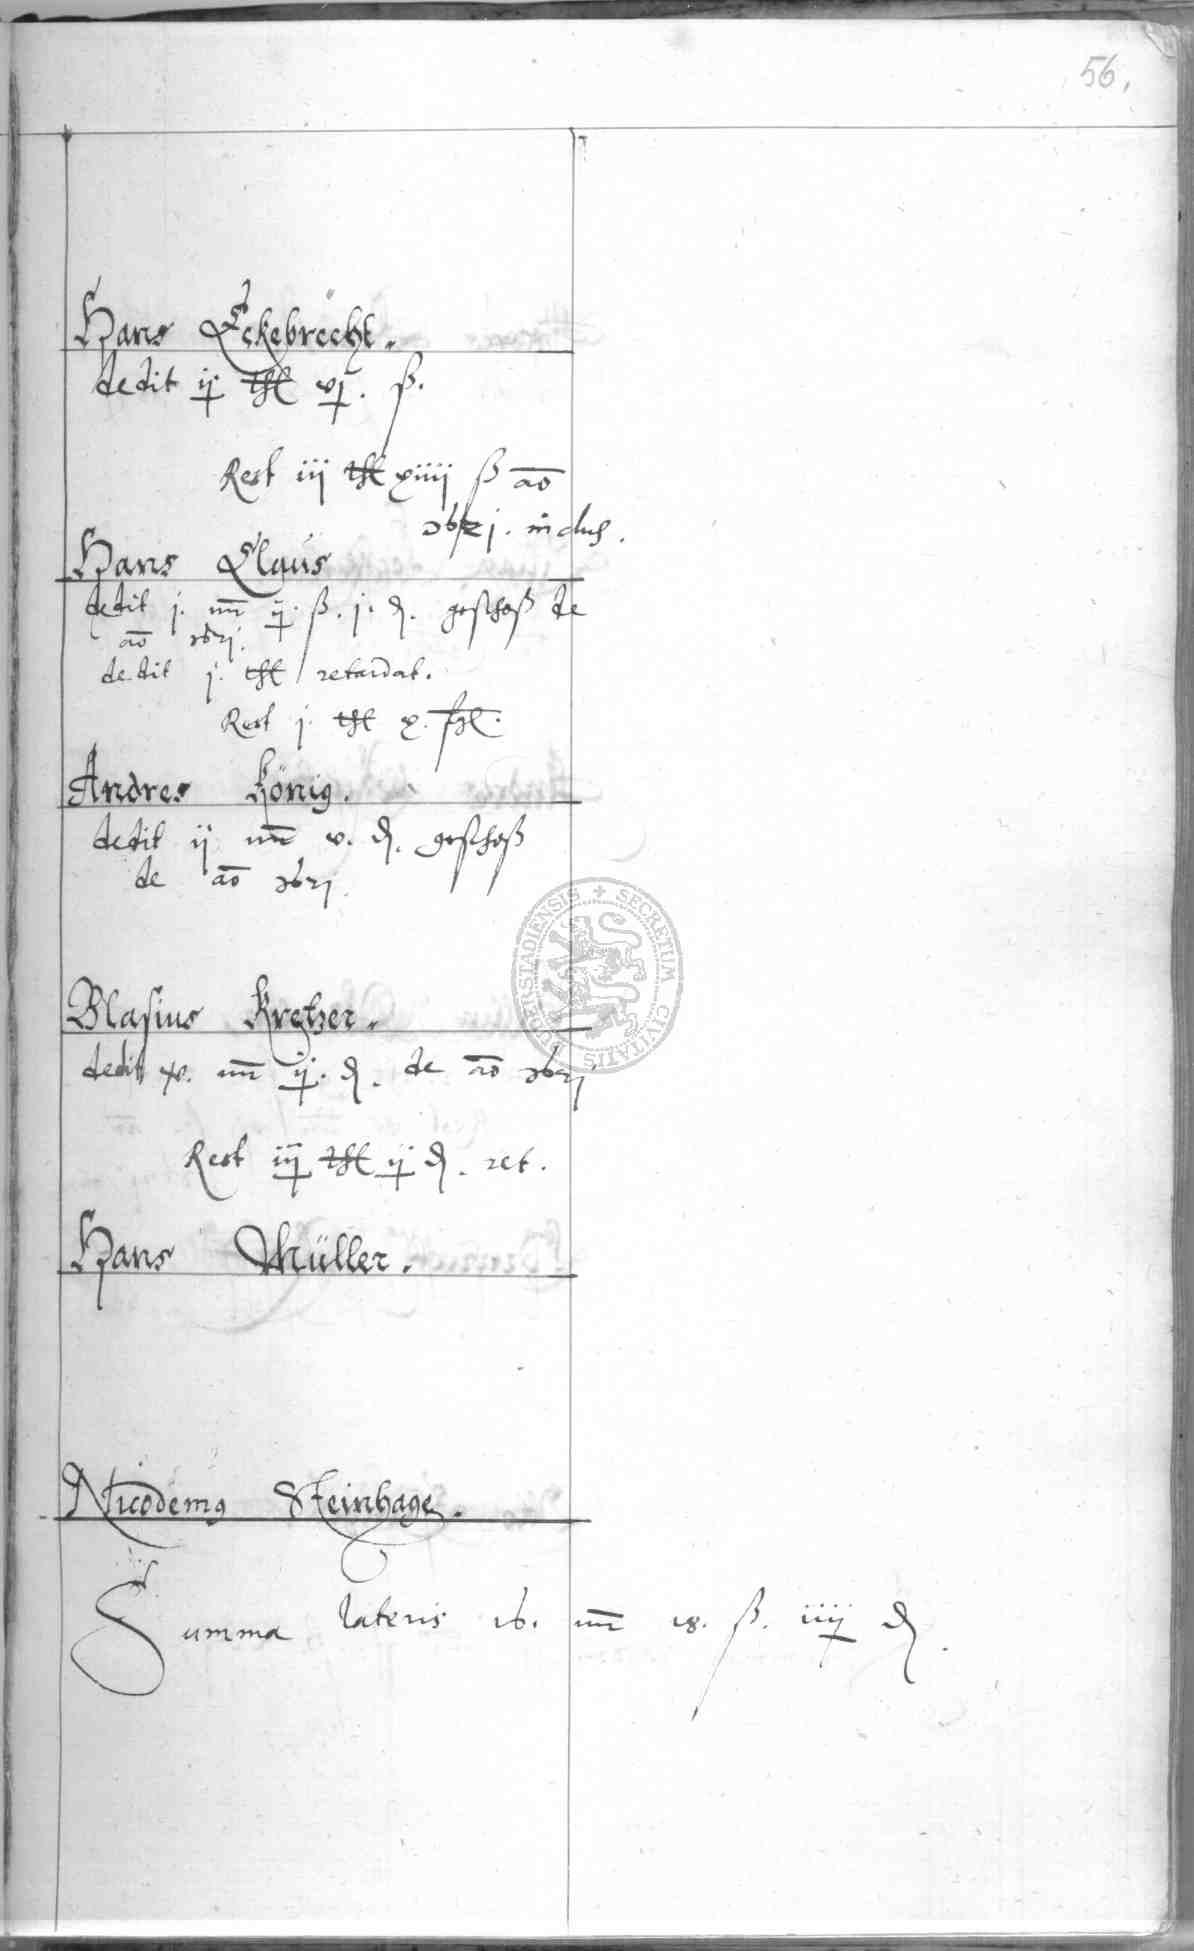 56.
Hans Eckebrecht.
dedit ij thl vj. ß.
Rest iij thl xiiij ß ao
1621. inclus.
Hans Claus
dedit j. mr ij. ß. j. d. geschoß de
ao 1621.
dedit j. thl retardat.
Rest j. thl x. ßl.
Andres König.
dedit ij mr v. d. geschoß
de ao 1621
Blasius Kretzer.
dedit xv. mr ij. d. de ao 1621
Rest iij thl ij d. ret.
Hans Müller.
Nicodemus Steinhage.
Summa lateris 16. mr 18. ß. iiij d.
SECRETUM CIVITATIS DUDERSTADIENSIS